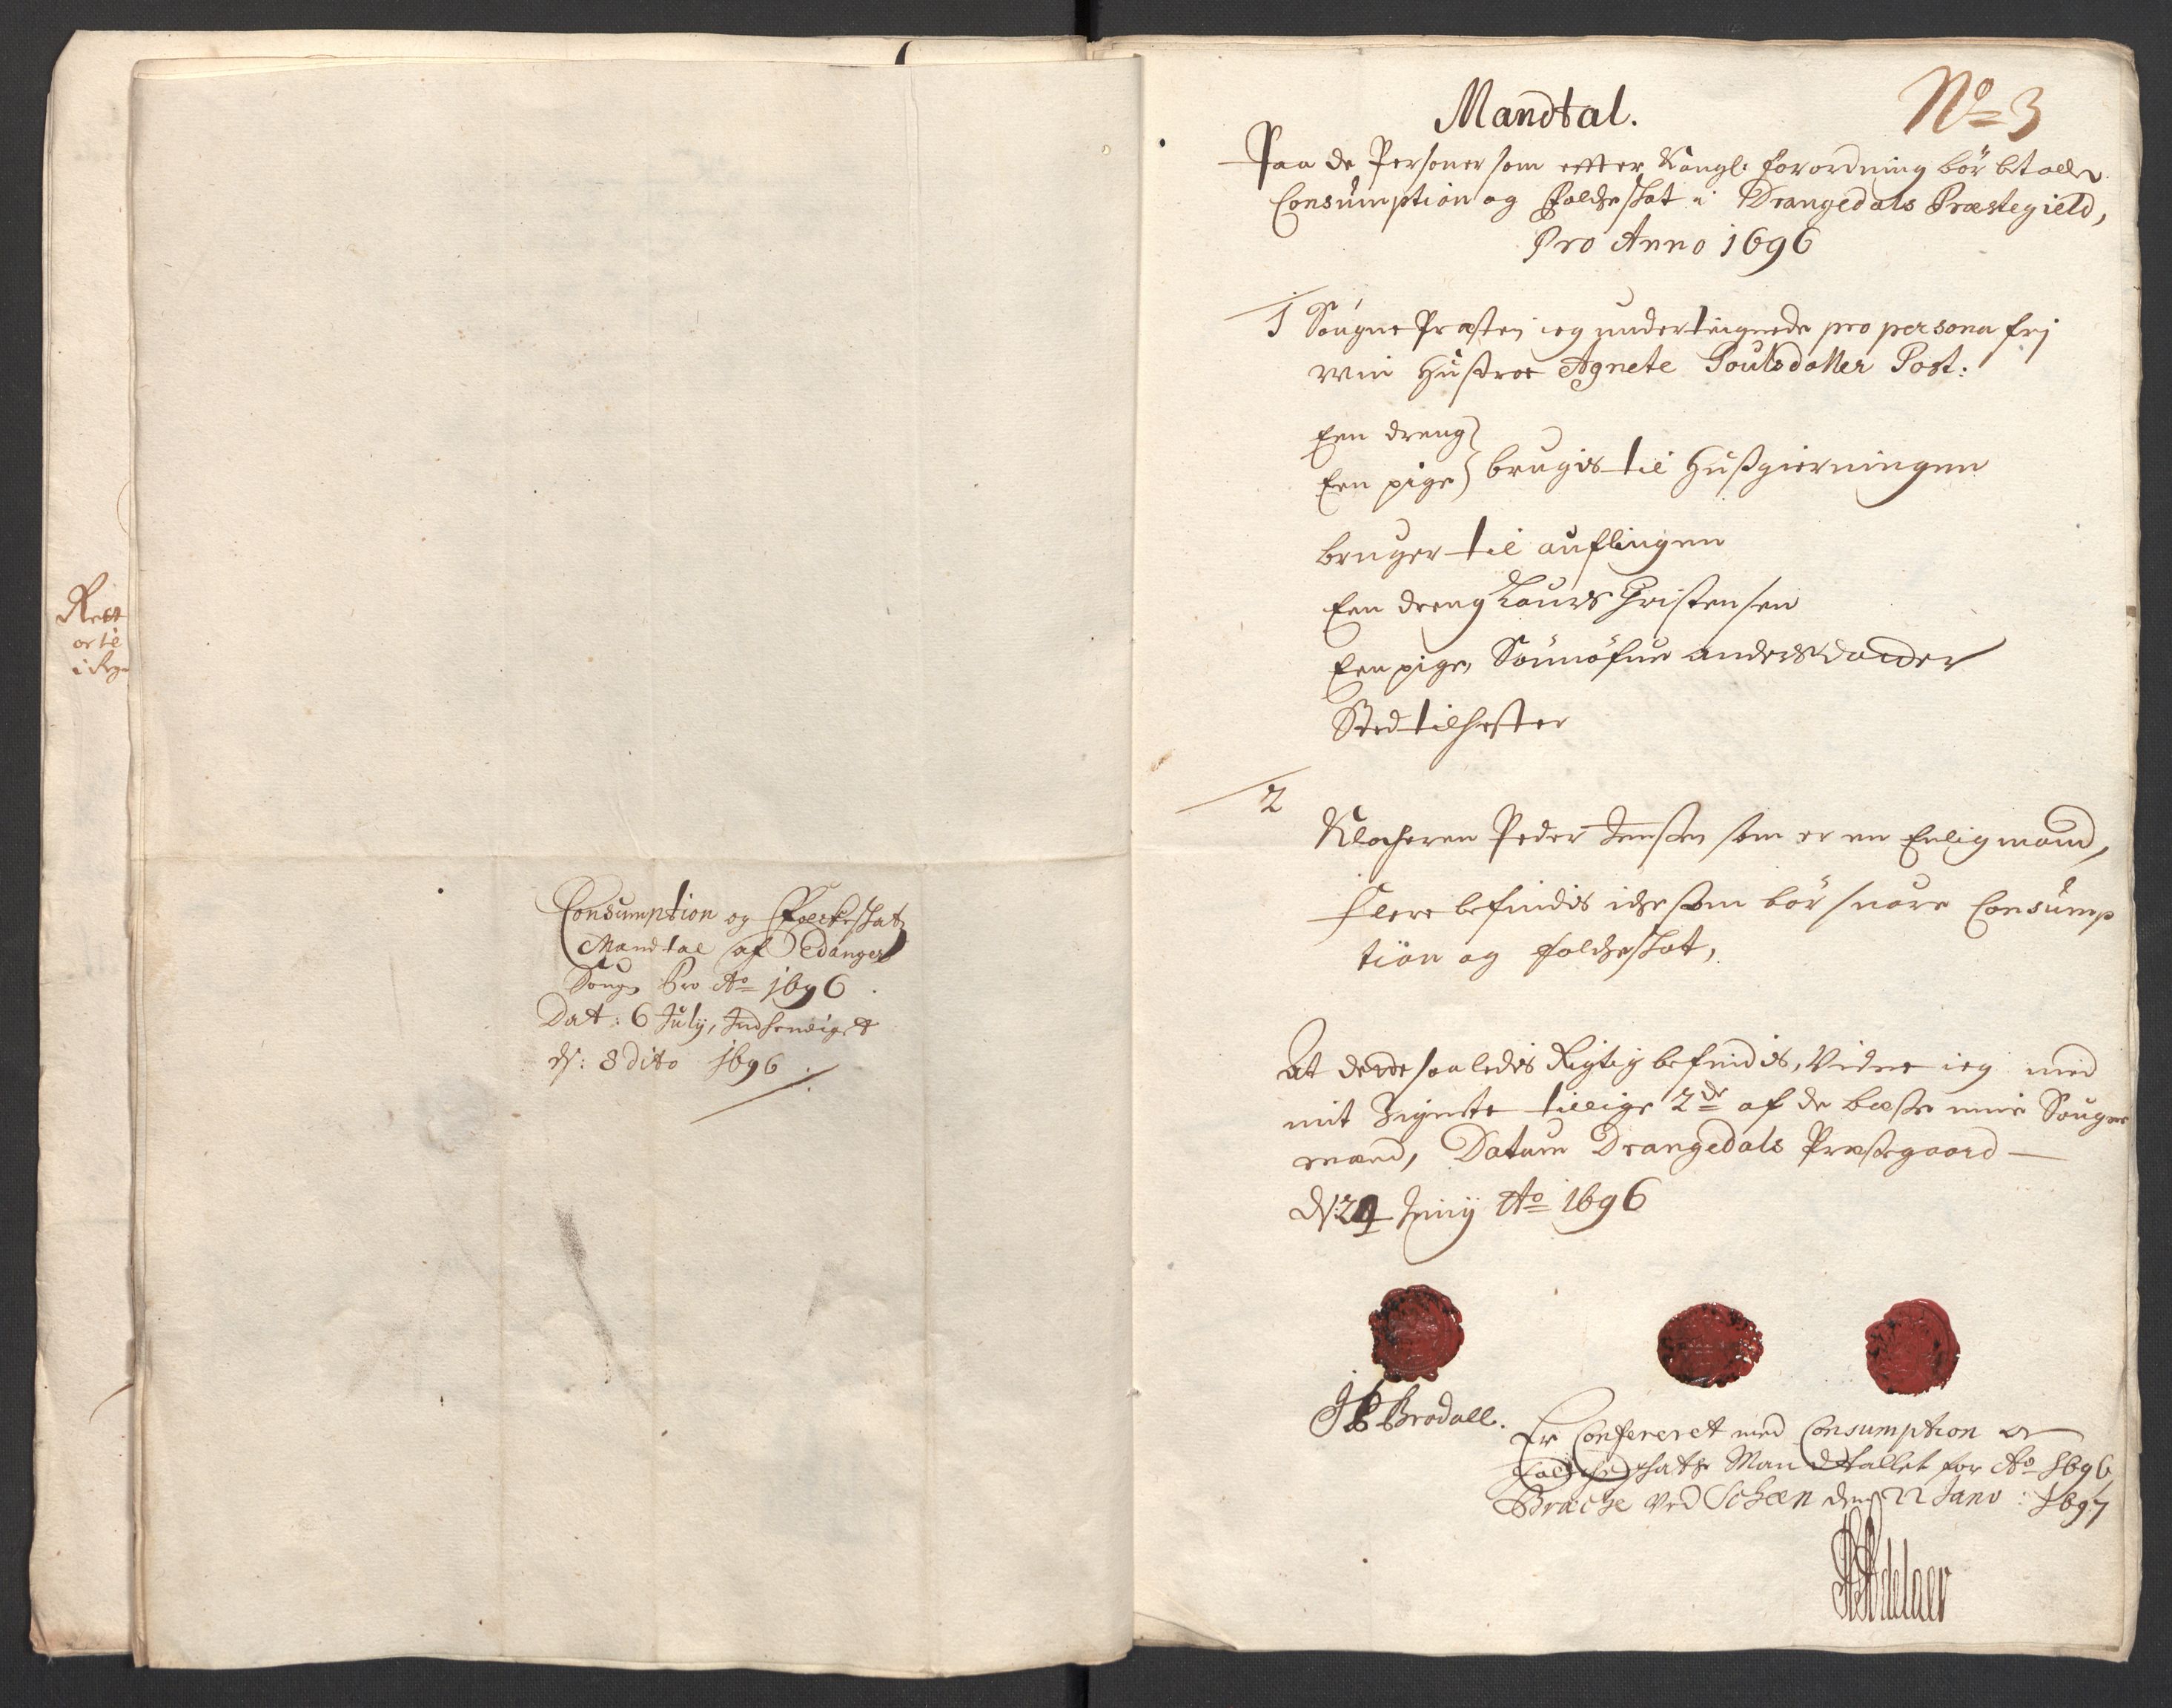 Rest
or til
Consumption og Folckeskat
Mandtal af Edanger
Sougn Pro Ao 1696
Dat: 6 July, Indhendiget
dn: 8 dito 1696
Mandtal.
No 3
Paa de Personer som effter Kongl: forordning bør betalle
Consumption og Folcheskat i Drangedals Præstegield,
Pro Anno 1696
1 Sougne Præsten ieg underteignede pro persona frj
min Hustroe Agnete Poulsdatter Post:
Een dreng
Een pige } brugis til Hußgierningen
bruger til auflingen
Een dreng Laurs Christensen
Een pige, andersdaader
Sted til hester
2
Klocheren Peder Jensen som er en Enlig mand,
flere befindis iche som bør svare Consump
tion og folcheskat,
At dette saaledis Rigtig befindis, Vidner ieg med
mit Zignete tillige 2de af de beste mine Sougne
mænd, Datum Drangedals Præstegaard
dn: 24 Junij Ao 1696
J P Brodall.
Er Confereret med Consumption og
Folcheskats Mandtallet for Ao 1696
Brache ved Scheen den 22 Janv: 1697
Adelaer